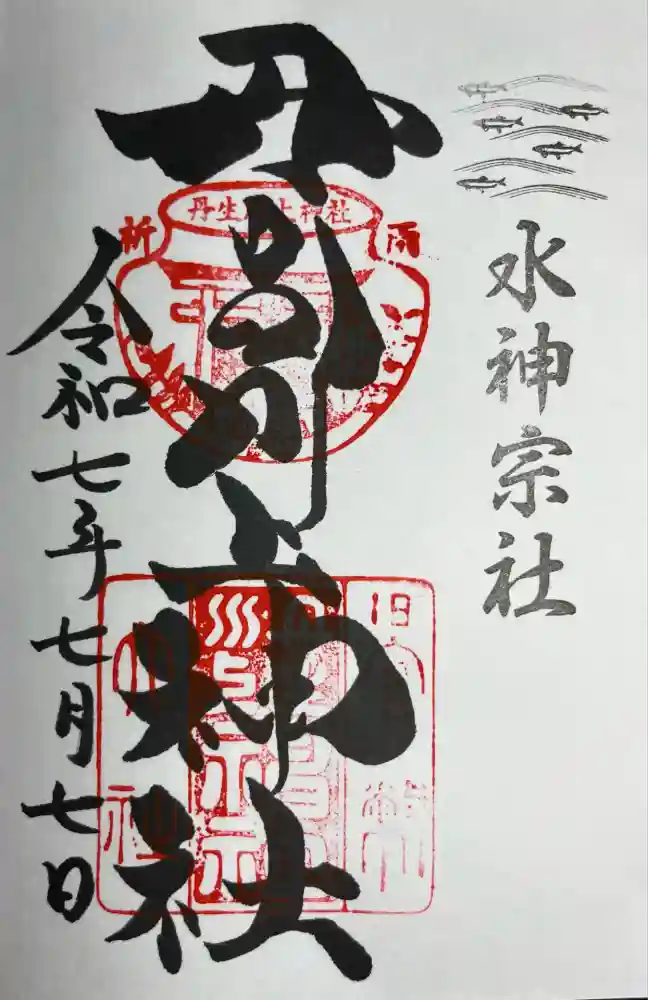 水神宗社
丹生川上神社
丹生川上神社
祈 雨
令和七年七月七日